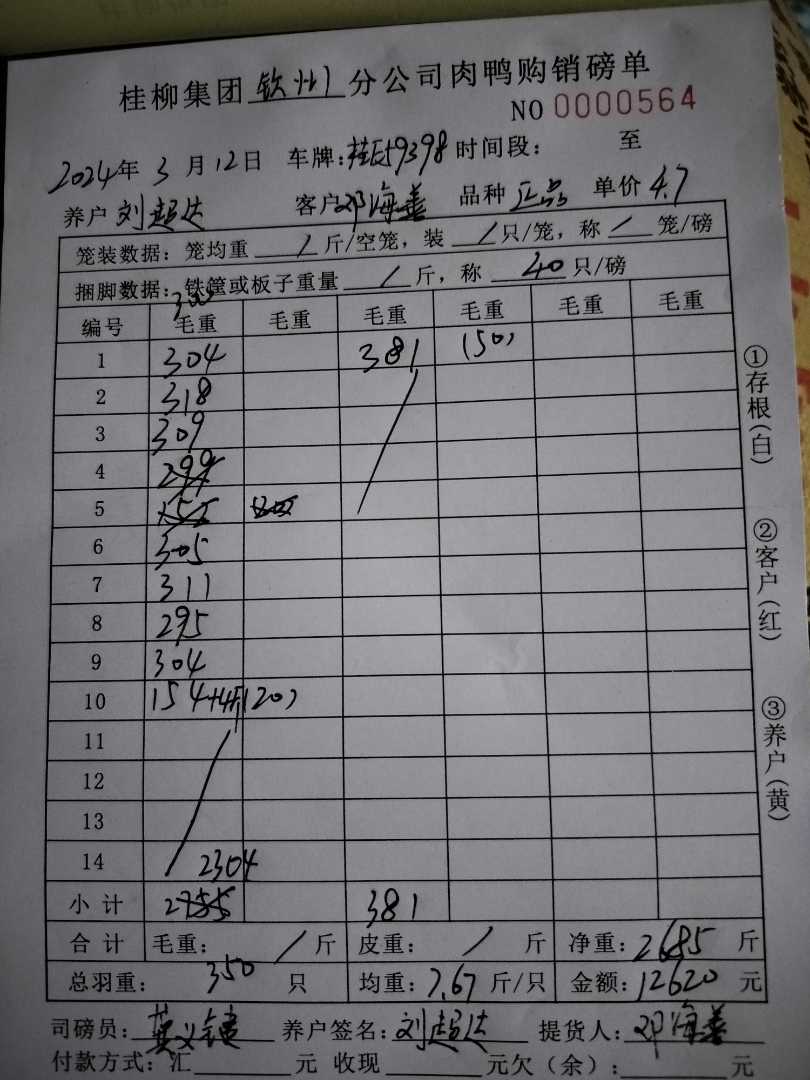 桂柳集团 钦州 分公司肉鸭购销磅单
NO 0000564
2024年 3 月 12日 车牌:桂E59398 时间段: 至
养户 刘超达 客户 邓海善 品种 正品 单价 4.7
笼装数据: 笼均重 / 斤/空笼, 装 / 只/笼, 称 / 笼/磅
捆脚数据: 铁筐或板子重量 / 斤, 称 40 只/磅
300
编号 毛重 毛重 毛重 毛重 毛重 毛重
1 304 381 (50)
2 318
3 309
4 299
5 155
6 305
7 311
8 295
9 304
10 154+4斤(20)
11
12
13
14 2304
小计 2755 381
合计 毛重: / 斤 皮重: / 斤 净重: 2685 斤
总羽重: 350 只 均重: 7.67 斤/只 金额: 12620 元
司磅员: 养户签名: 刘超达 提货人: 邓海善
付款方式: 汇 元 收现 元欠(余): 元
①存根(白)
②客户(红)
③养户(黄)